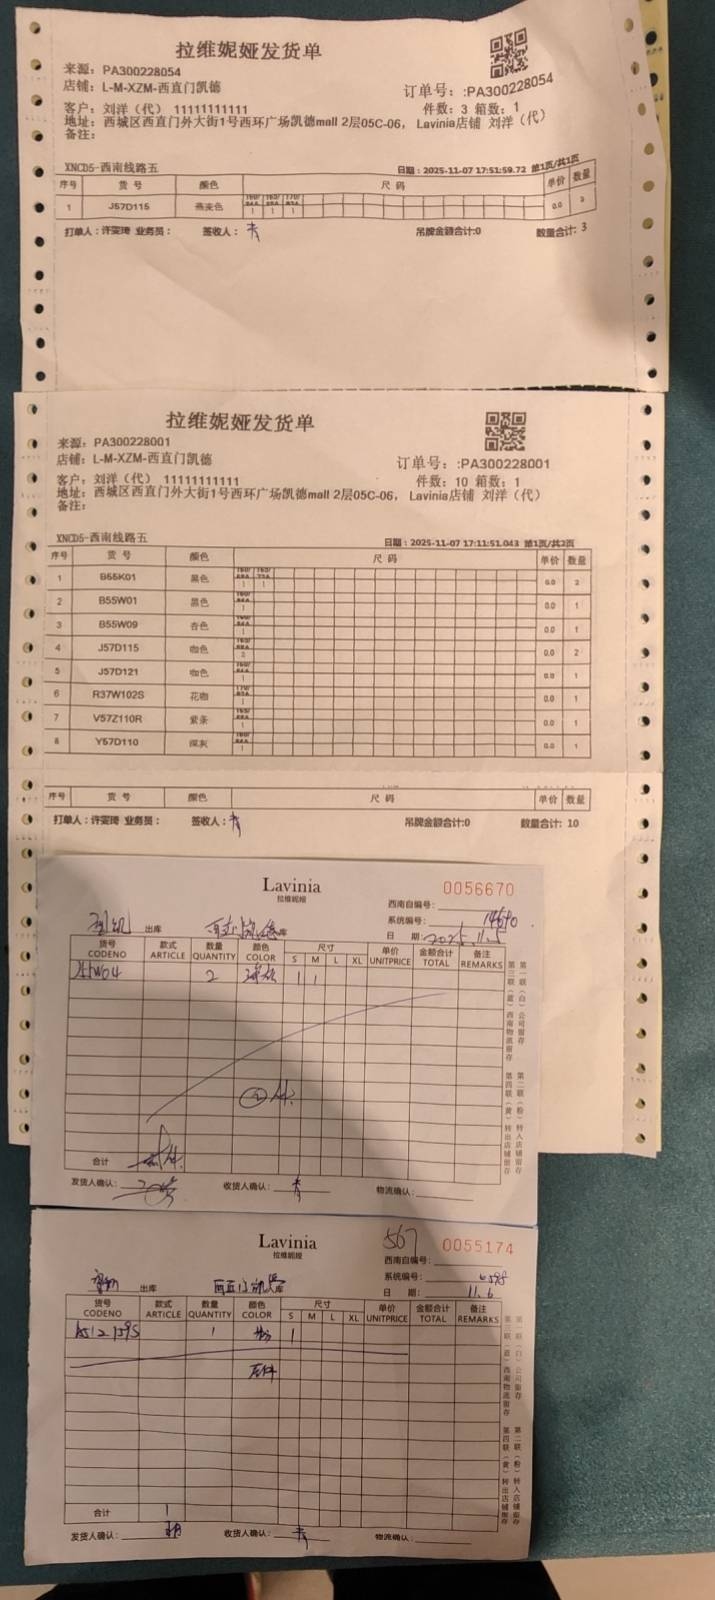 拉维妮娅发货单
来源：PA300228054
店铺：L-M-XZM-西直门凯德
订单号：:PA300228054
客户：刘洋（代） 11111111111
件数：3 箱数：1
地址：西城区西直门外大街1号西环广场凯德mall 2层05C-06， Lavinia店铺 刘洋（代）
备注：
XNCD5-西南线路五
日期：2025-11-07 17:51:59.72 第1页/共1页
序号 货号 颜色 尺码 单价 数量
1 J57D115 燕麦色 1 1 1 0.0 3
打单人：许雯琦 业务员： 签收人： 吊牌金额合计:0 数量合计: 3
拉维妮娅发货单
来源：PA300228001
店铺：L-M-XZM-西直门凯德
订单号：:PA300228001
客户：刘洋（代） 11111111111
件数：10 箱数：1
地址：西城区西直门外大街1号西环广场凯德mall 2层05C-06， Lavinia店铺 刘洋（代）
备注：
XNCD5-西南线路五
日期：2025-11-07 17:11:51.043 第1页/共2页
序号 货号 颜色 尺码 单价 数量
1 B55K01 黑色 1 1 0.0 2
2 B55W01 黑色 1 0.0 1
3 B55W09 杏色 1 0.0 1
4 J57D115 咖色 2 0.0 2
5 J57D121 咖色 1 0.0 1
6 R37W102S 花咖 1 0.0 1
7 V57Z110R 紫条 1 0.0 1
8 Y57D110 深灰 1 0.0 1
序号 货号 颜色 尺码 单价 数量
打单人：许雯琦 业务员： 签收人： 吊牌金额合计:0 数量合计: 10
Lavinia
拉维妮娅
0056670
西南自编号：
系统编号：
出库 西直门凯德库
日 期：2025.11.5
货号 CODENO 款式 ARTICLE 数量 QUANTITY 颜色 COLOR 尺寸 S M L XL 单价 UNITPRICE 金额合计 TOTAL 备注 REMARKS
2 1 1
合计
发货人确认： 收货人确认： 物流确认：
第一联（白）公司留存 第二联（粉）转入店铺留存
第三联（蓝）西南物流留存 第四联（黄）转出店铺留存
Lavinia
拉维妮娅
567
0055174
西南自编号：
系统编号：
出库 西直门凯德库
日 期：11.6
货号 CODENO 款式 ARTICLE 数量 QUANTITY 颜色 COLOR 尺寸 S M L XL 单价 UNITPRICE 金额合计 TOTAL 备注 REMARKS
1 1
合计 1
发货人确认： 收货人确认： 物流确认：
第一联（白）公司留存 第二联（粉）转入店铺留存
第三联（蓝）西南物流留存 第四联（黄）转出店铺留存